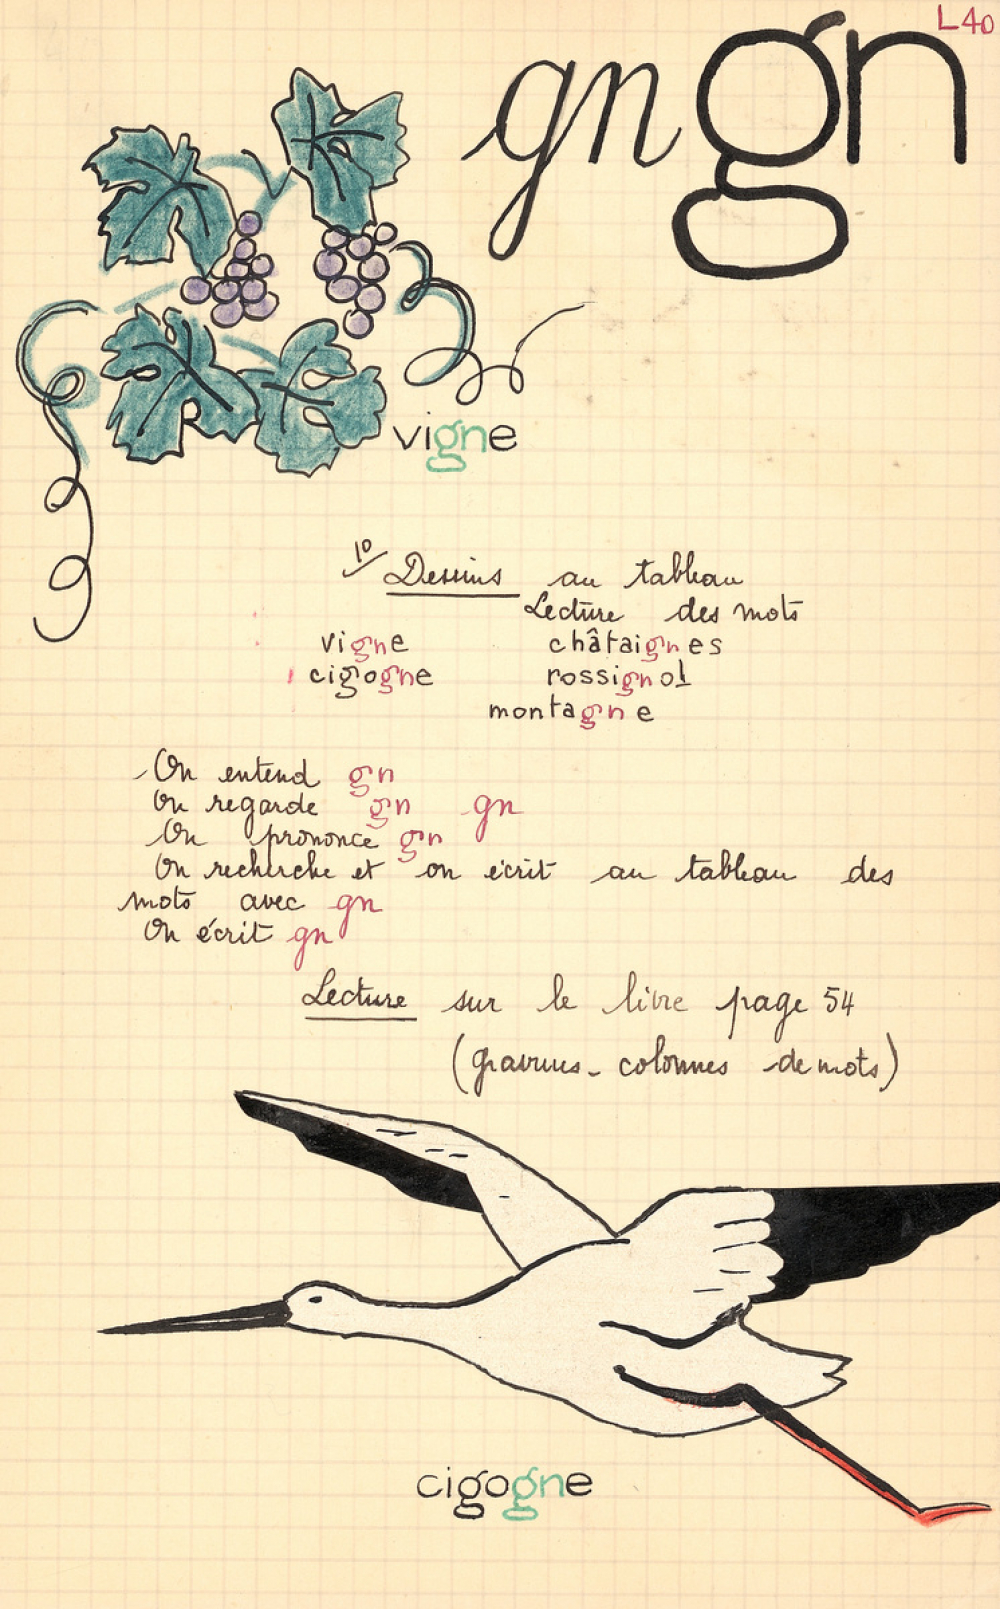 L40
gn gn
vigne
1° Dessins au tableau
Lecture des mots
vigne châtaignes
cigogne rossignol
montagne
On entend gn
On regarde gn gn
On prononce gn
On recherche et on écrit au tableau des
mots avec gn
On écrit gn
Lecture sur le livre page 54
(gravures - colonnes de mots)
cigogne